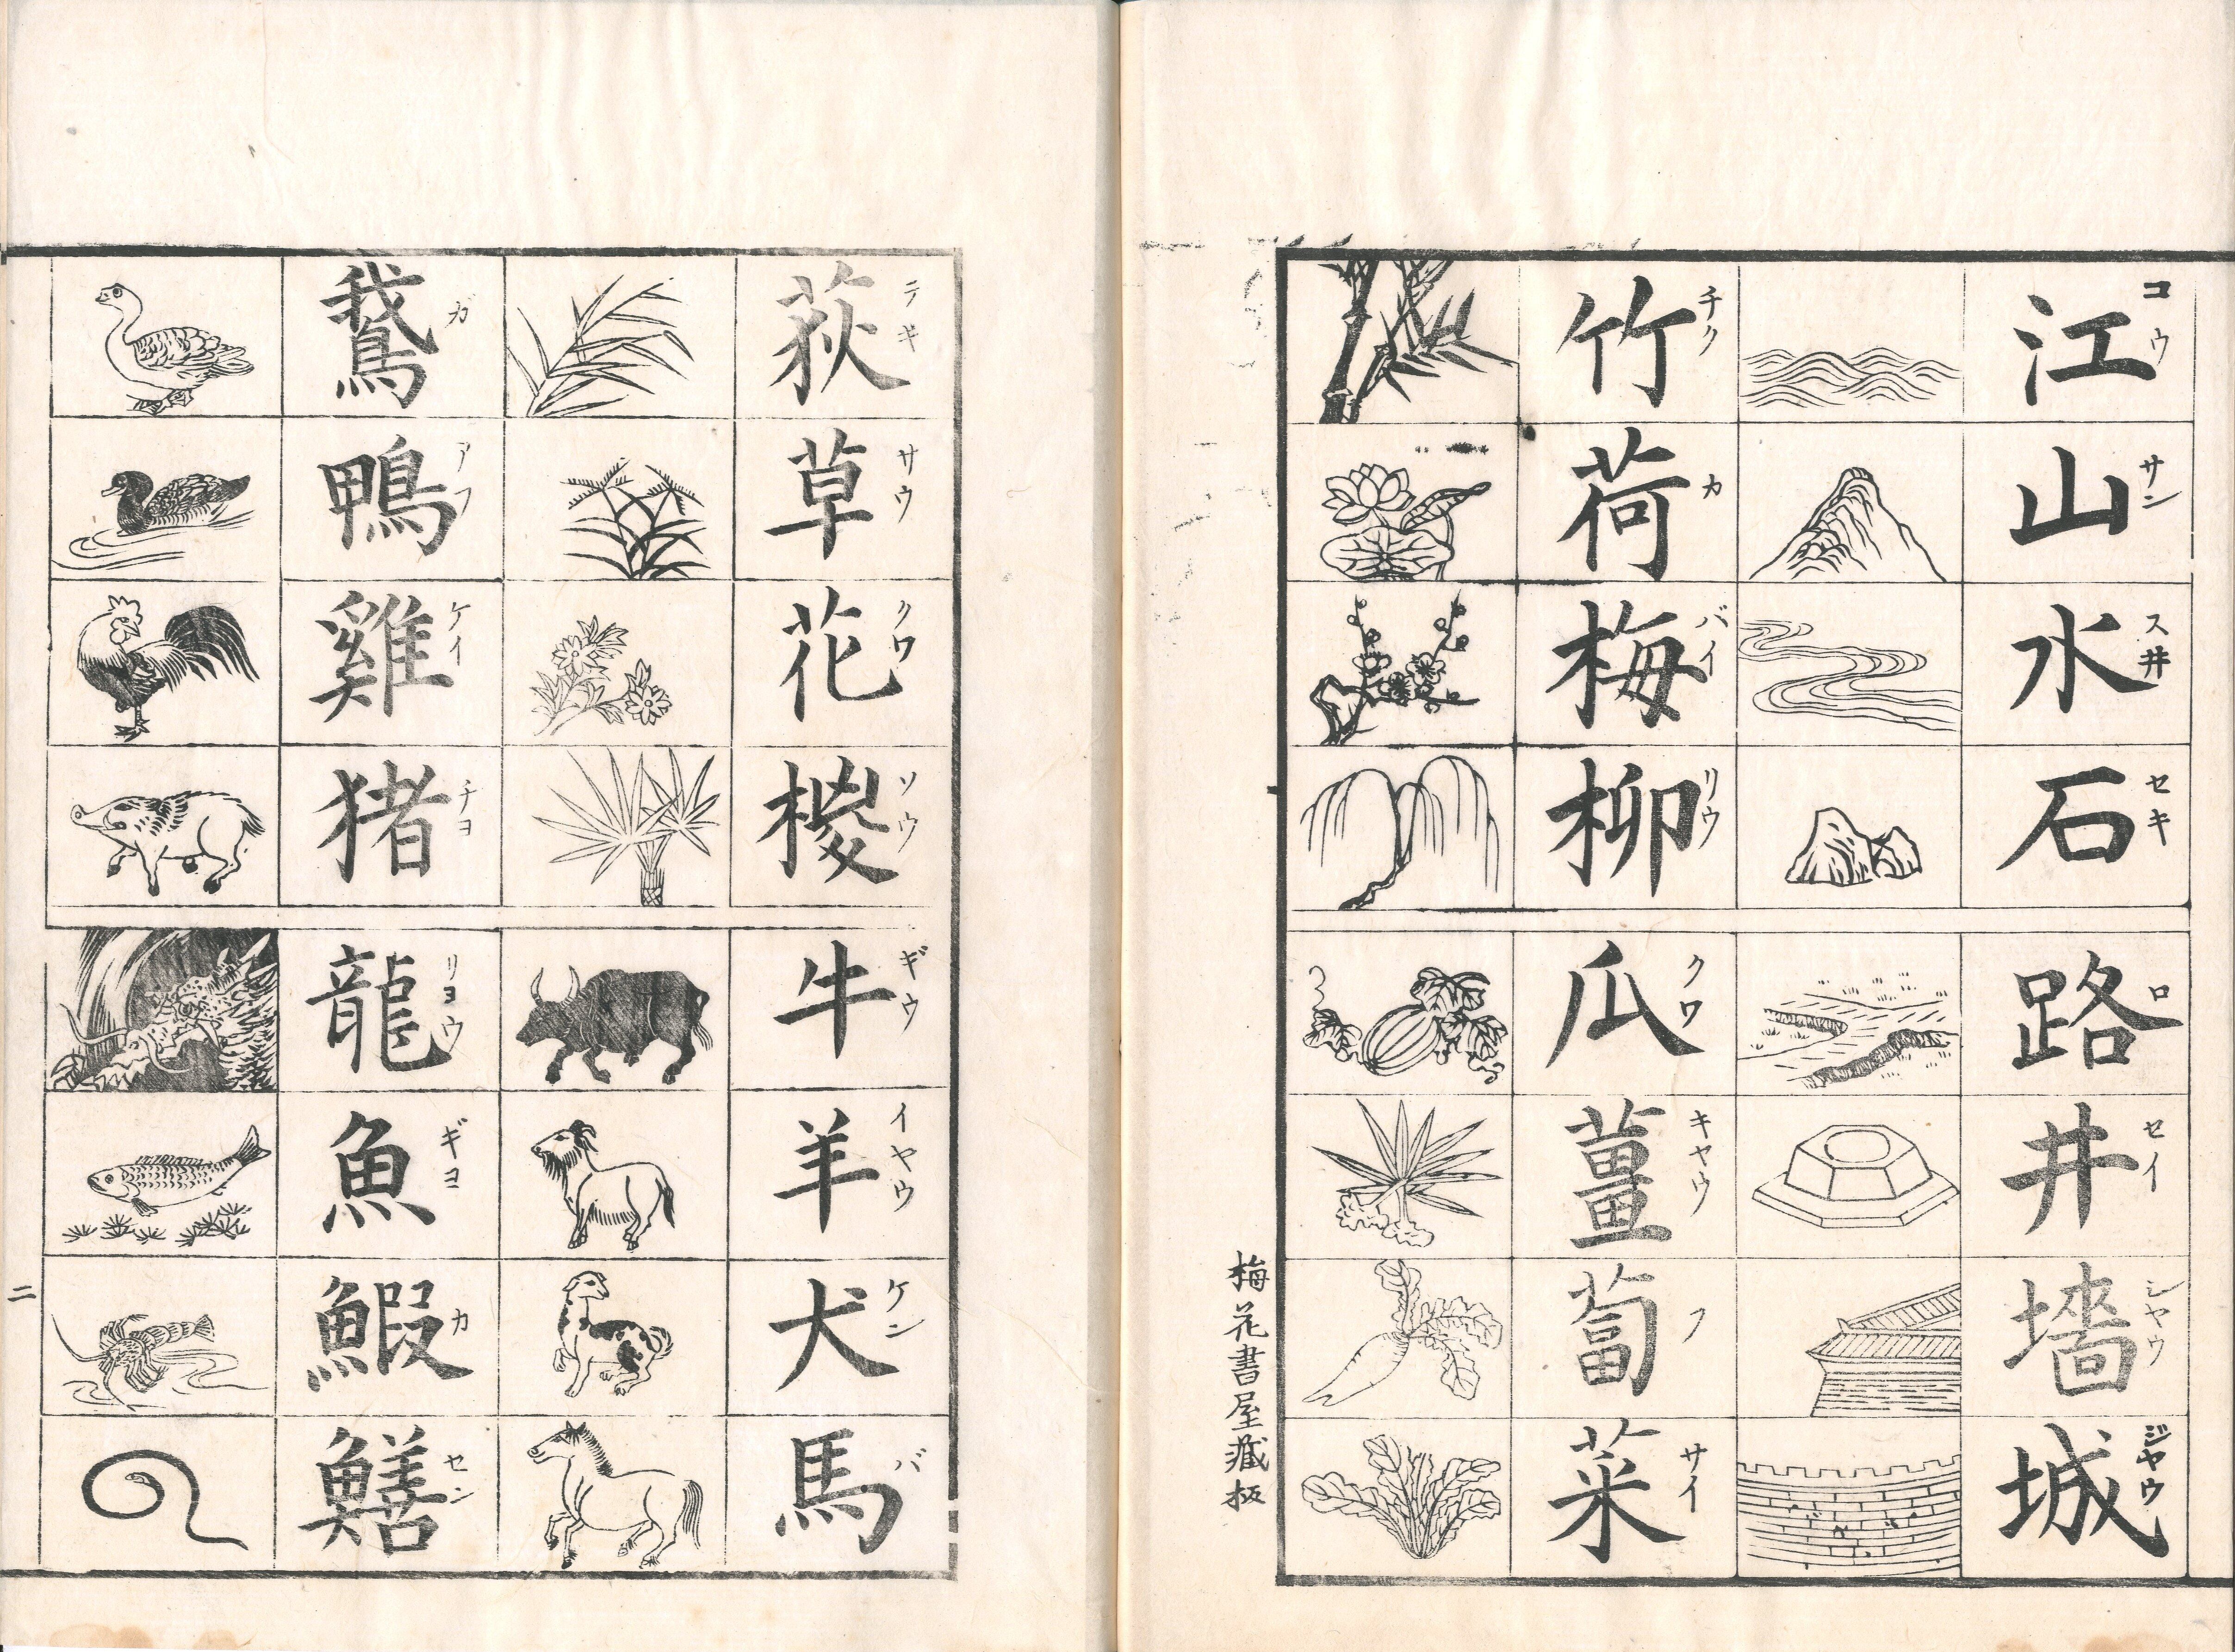 江 コウ
山 サン
水 ス井
石 セキ
路 ロ
井 セイ
墻 シヤウ
城 ジヤウ
竹 チク
荷 カ
梅 バイ
柳 リウ
瓜 クワ
薑 キヤウ
蔔 フ
菜 サイ
梅花書屋藏板
荻 テキ
草 サウ
花 クワ
椶 ソウ
牛 ギウ
羊 イヤウ
犬 ケン
馬 バ
鵞 ガ
鴨 アフ
雞 ケイ
猪 チヨ
龍 リヨウ
魚 ギヨ
鰕 カ
鱔 セン
二